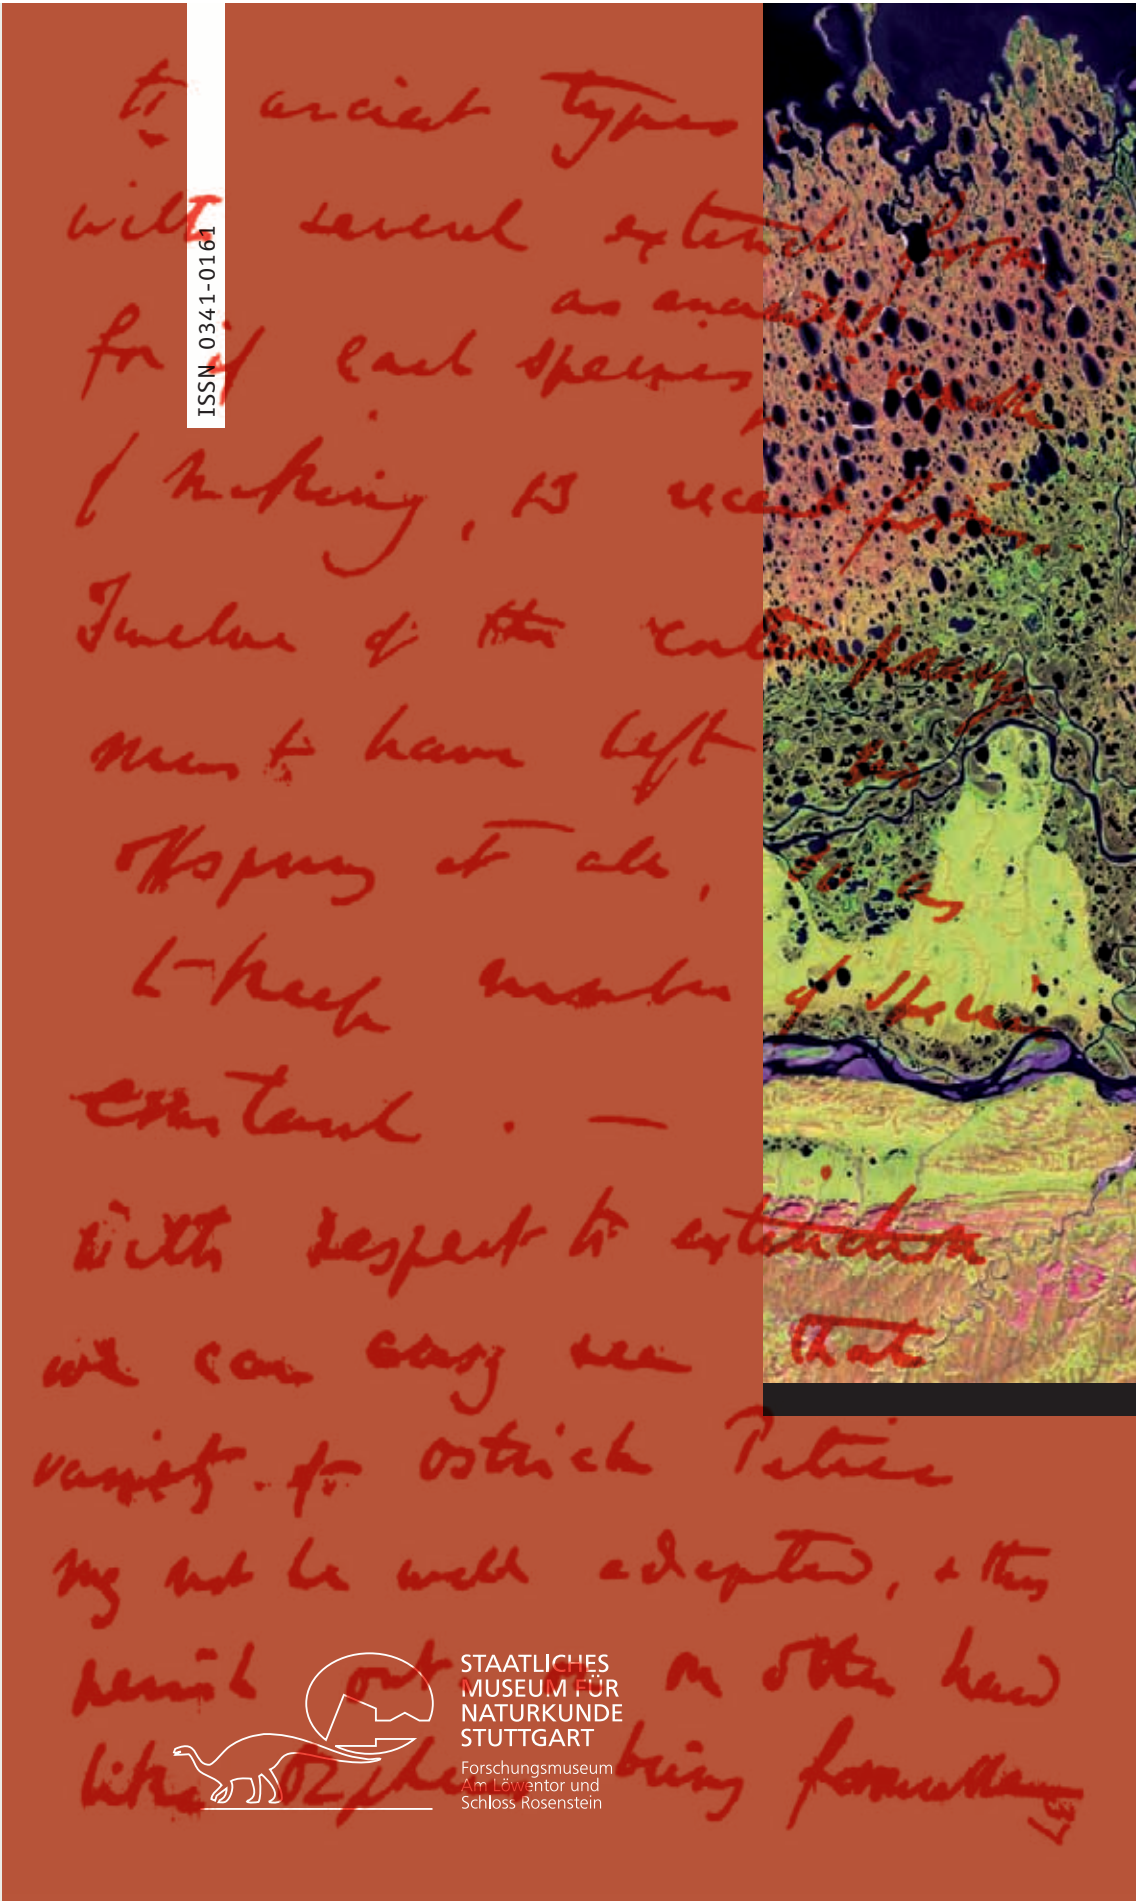 to ancient types
with several extinct forms
for if each species as ancient
of making, 13 recent forms
Twelve of the contemporarys
must have left no
offspring at all, so as
to keep number of species
constant . —
With respect to extinction
we can easy see that
variety of ostrich Petise
may not be well adapted, & thus
perish out. or on other hand
like Orpheus being favourable
ISSN 0341-0161
STAATLICHES
MUSEUM FÜR
NATURKUNDE
STUTTGART
Forschungsmuseum
Am Löwentor und
Schloss Rosenstein